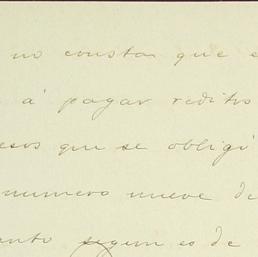 no consta que
á pagar reditos
esos que se obligó
numero nueve de
anto segun es de